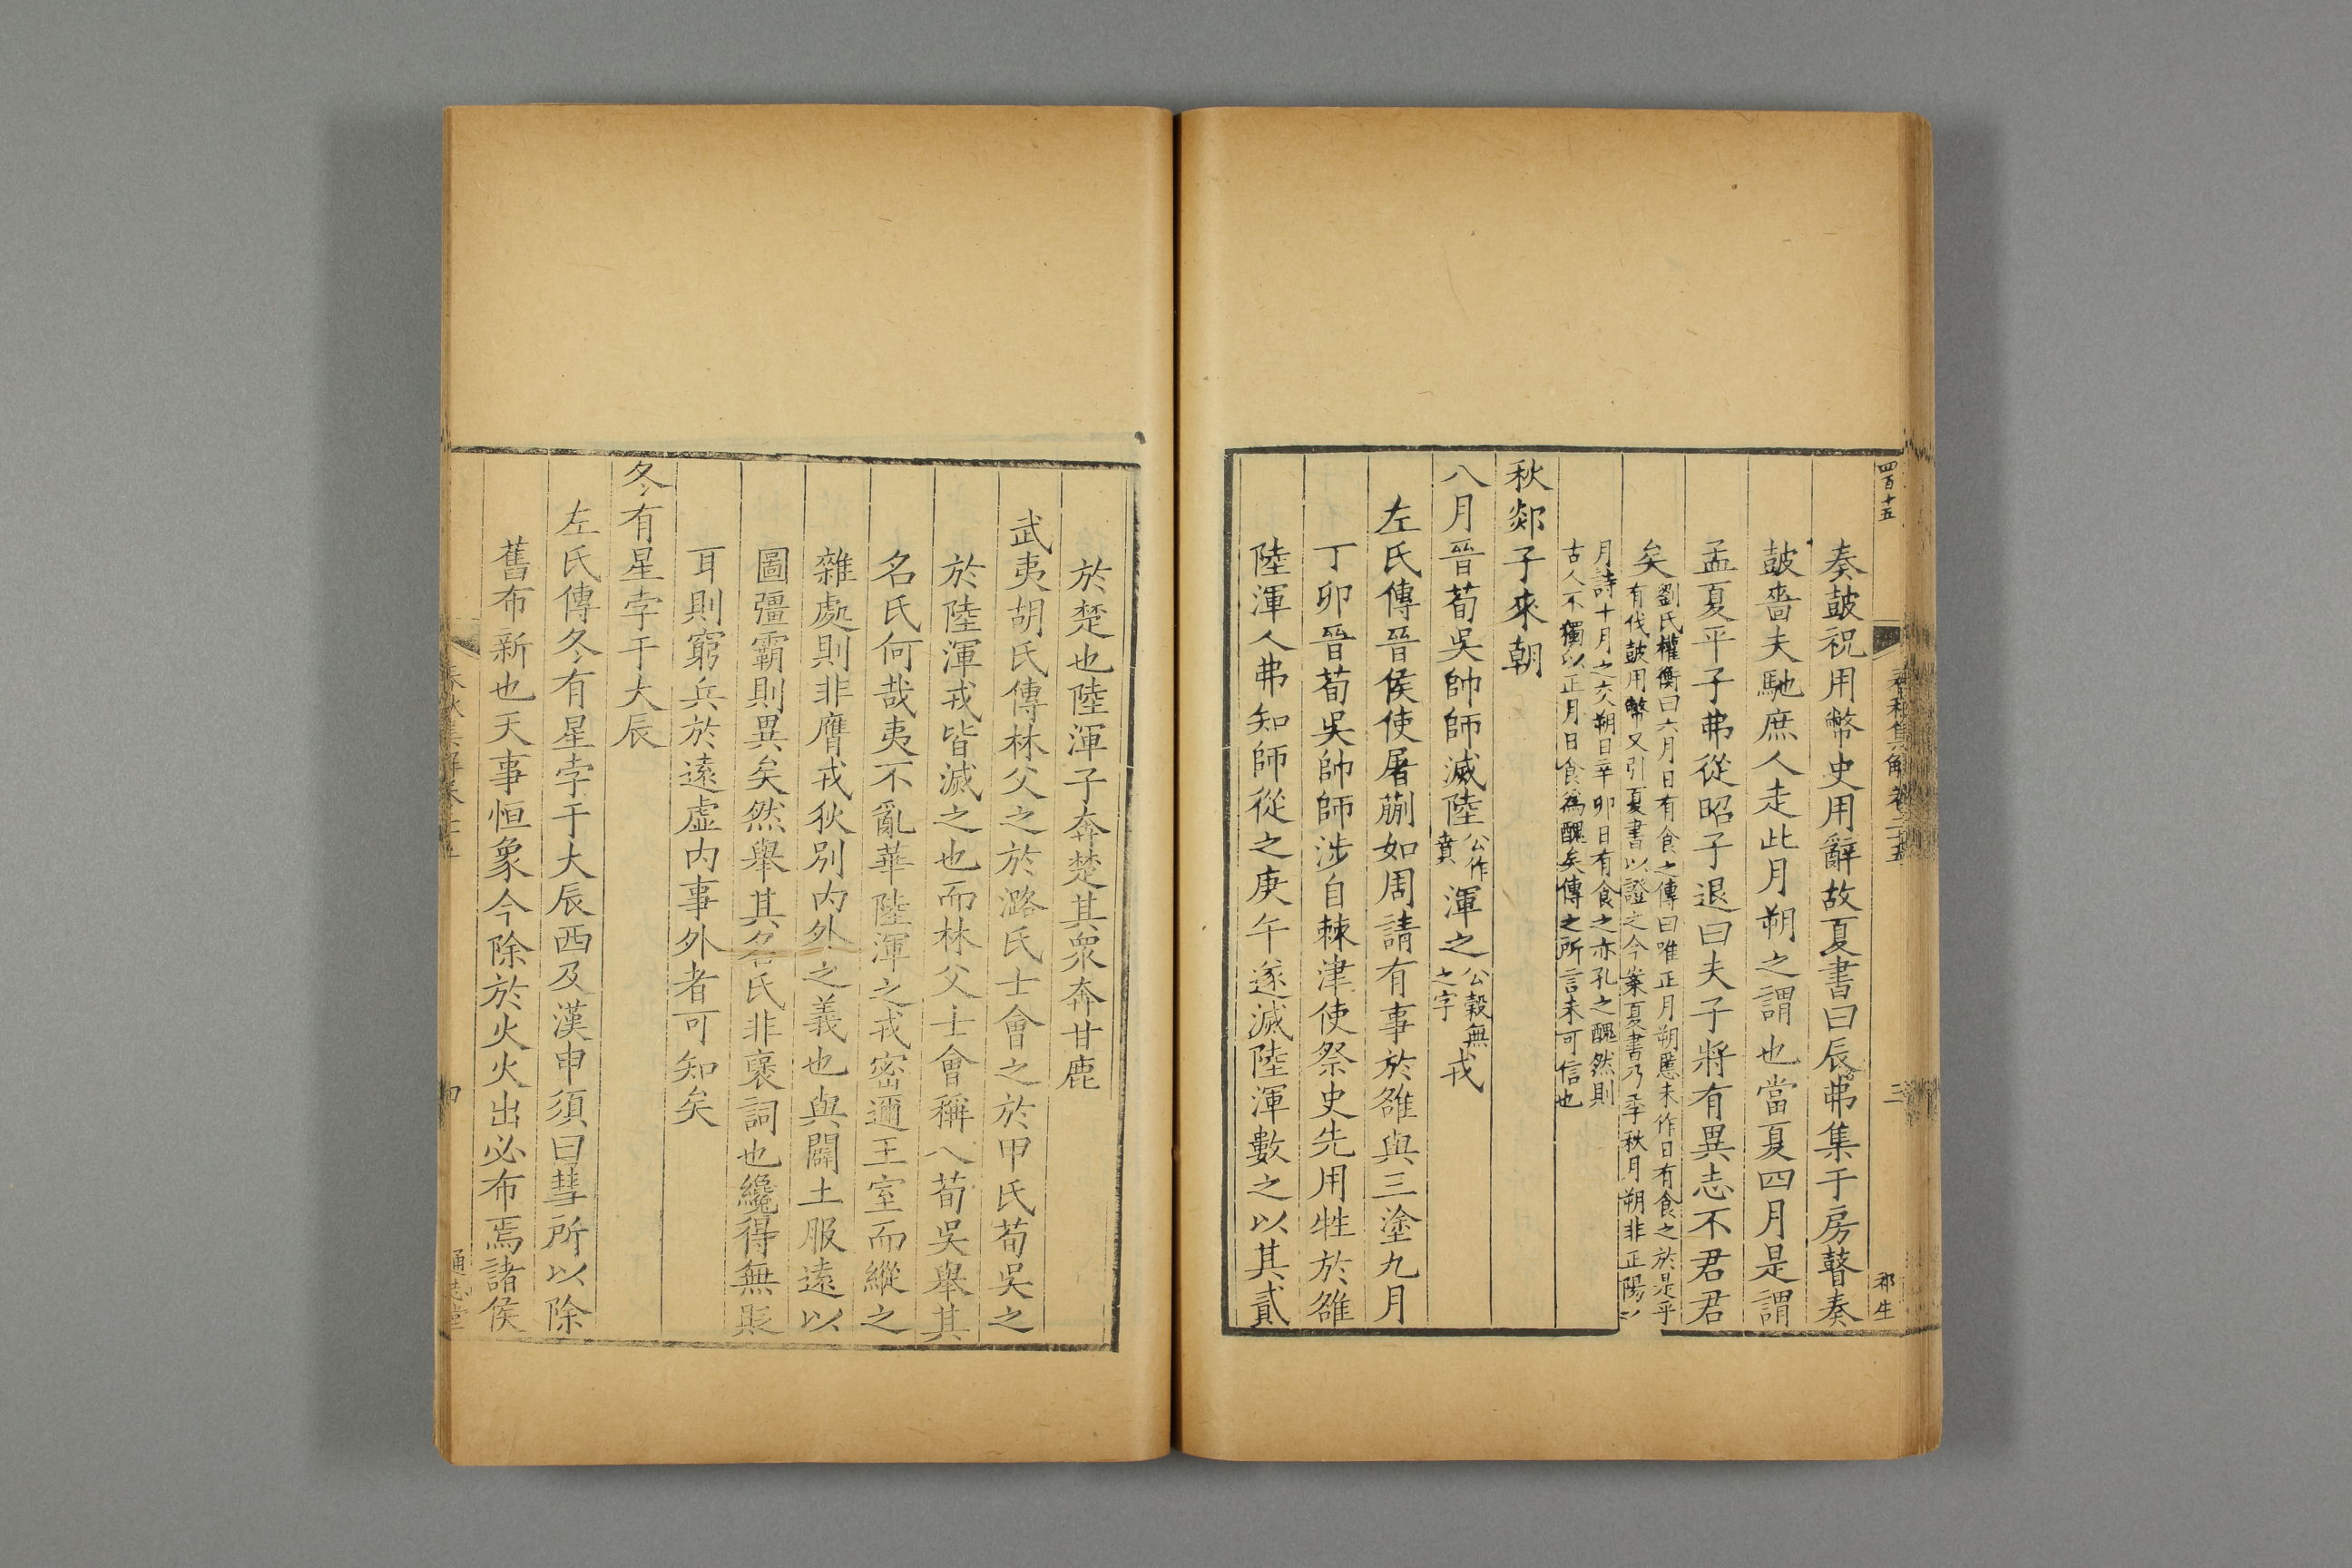 四百十五
春秋集解卷二十五
三
祁生
奏鼓祝用幣史用辭故夏書曰辰弗集于房瞽奏
鼓嗇夫馳庶人走此月朔之謂也當夏四月是謂
孟夏平子弗從昭子退曰夫子將有異志不君君
矣
劉氏權衡曰六月日有食之傳曰唯正月朔慝未作日有食之於是乎
有伐鼓用幣又引夏書以證之今案夏書乃季秋月朔非正陽以
月詩十月之交朔日辛卯日有食之亦孔之醜然則
古人不獨以正月日食為醜矣傳之所言未可信也
秋郯子來朝
八月晉荀吳帥師滅陸公作賁渾之公穀無之字戎
左氏傳晉侯使屠蒯如周請有事於雒與三塗九月
丁卯晉荀吳帥師涉自棘津使祭史先用牲於雒
陸渾人弗知師從之庚午遂滅陸渾數之以其貳
於楚也陸渾子奔楚其衆奔甘鹿
武夷胡氏傳林父之於潞氏士會之於甲氏荀吳之
於陸渾戎皆滅之也而林父士會稱人荀吳舉其
名氏何哉夷不亂華陸渾之戎密邇王室而縱之
雜處則非膺戎狄別內外之義也與闢土服遠以
圖彊霸則異矣然舉其名氏非褒詞也纔得無貶
耳則窮兵於遠虛內事外者可知矣
冬有星孛于大辰
左氏傳冬有星孛于大辰西及漢申須曰彗所以除
舊布新也天事恒象今除於火火出必布焉諸侯
春秋集解卷二十五
四
通志堂